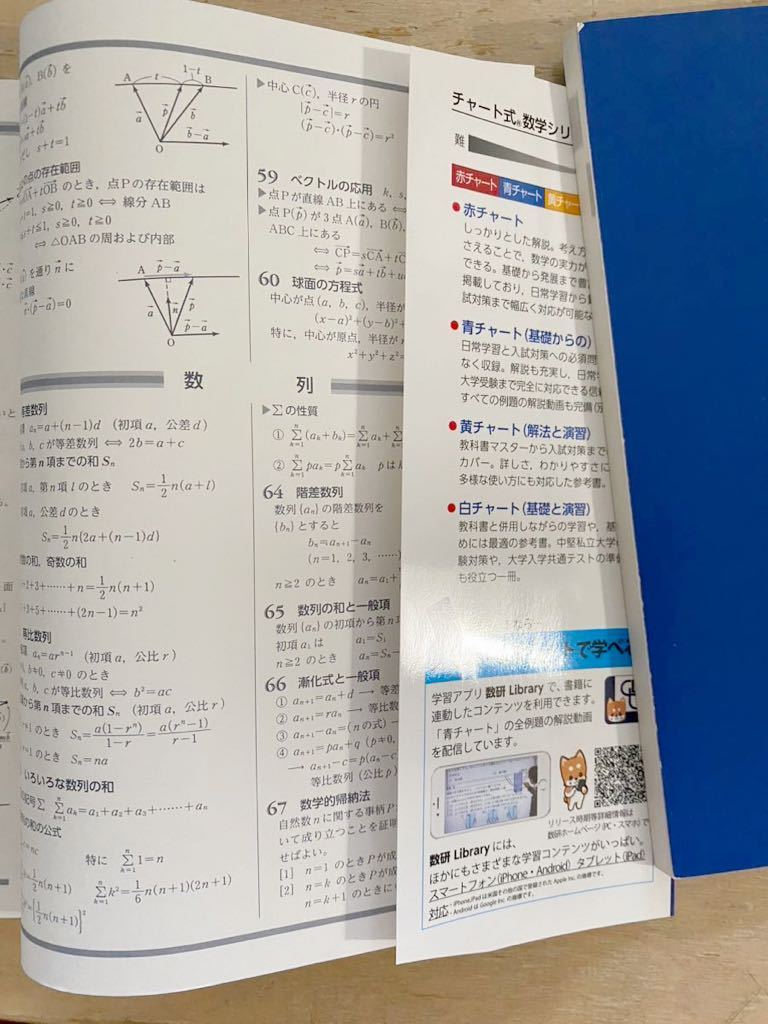 A t 1-t B
a p b b-a
O
B(b) を
-t)a+tb
a+tb
s+t=1
の点の存在範囲
+tOB のとき，点Pの存在範囲は
=1, s≧0, t≧0 ⇔ 線分 AB
s+t≦1, s≧0, t≧0
⇔ △OAB の周および内部
を通り n に
直線
n・(p-a)=0
A p-a
a n p p-a
O
▶中心 C(c)，半径 r の円
|p-c|=r
(p-c)・(p-c)=r²
59 ベクトルの応用 k, s,
▶点Pが直線 AB 上にある ⇔
▶点 P(p) が 3 点 A(a), B(b),
ABC 上にある
⇔ CP=sCA+tC
⇔ p=sa+tb+u
60 球面の方程式
中心が点 (a, b, c)，半径が
(x-a)²+(y-b)²+
特に，中心が原点，半径が
x²+y²+z²=
数 列
差数列
項 aₙ=a+(n-1)d （初項 a，公差 d）
a, b, c が等差数列 ⇔ 2b=a+c
から第 n 項までの和 Sₙ
項 a，第 n 項 l のとき Sₙ=1/2 n(a+l)
項 a，公差 d のとき
Sₙ=1/2 n{2a+(n-1)d}
数の和，奇数の和
+2+3+……+n=1/2 n(n+1)
+3+5+……+(2n-1)=n²
等比数列
項 aₙ=arⁿ⁻¹ （初項 a，公比 r）
b≠0, c≠0 のとき
a, b, c が等比数列 ⇔ b²=ac
から第 n 項までの和 Sₙ （初項 a，公比 r）
≠1 のとき Sₙ=a(1-rⁿ)/1-r=a(rⁿ-1)/r-1
=1 のとき Sₙ=na
いろいろな数列の和
記号 Σ Σₖ₌₁ⁿ aₖ=a₁+a₂+a₃+……+aₙ
の和の公式
=nc 特に Σₖ₌₁ⁿ 1=n
=1/2 n(n+1) Σₖ₌₁ⁿ k²=1/6 n(n+1)(2n+1)
={1/2 n(n+1)}²
▶Σ の性質
① Σₖ₌₁ⁿ (aₖ+bₖ)=Σₖ₌₁ⁿ aₖ+Σ
② Σₖ₌₁ⁿ paₖ=pΣₖ₌₁ⁿ aₖ p は
64 階差数列
数列 {aₙ} の階差数列を
{bₙ} とすると
bₙ=aₙ₊₁-aₙ
(n=1, 2, 3, ……)
n≧2 のとき aₙ=a₁+
65 数列の和と一般項
数列 {aₙ} の初項から第 n 項
初項 a₁ は a₁=S₁
n≧2 のとき aₙ=Sₙ-
66 漸化式と一般項
① aₙ₊₁=aₙ+d → 等差
② aₙ₊₁=raₙ → 等比数
③ aₙ₊₁-aₙ=(n の式) →
④ aₙ₊₁=paₙ+q (p≠0,
→ aₙ₊₁-c=p(aₙ-c)
等比数列 (公比 p)
67 数学的帰納法
自然数 n に関する事柄 P
いて成り立つことを証明
せばよい。
[1] n=1 のとき P が成
[2] n=k のとき P が成
n=k+1 のときに
チャート式®数学シリ
難
赤チャート 青チャート 黄チャー
●赤チャート
しっかりとした解説。考え方
さえることで、数学の実力が
できる。基礎から発展まで豊
掲載しており、日常学習から
試対策まで幅広く対応が可能な
●青チャート（基礎からの）
日常学習と入試対策への必須問
なく収録。解説も充実し、日常
大学受験まで完全に対応できる信
すべての例題の解説動画も完備（
●黄チャート（解法と演習）
教科書マスターから入試対策まで
カバー。詳しさ、わかりやすさに
多様な使い方にも対応した参考書。
●白チャート（基礎と演習）
教科書と併用しながらの学習や、基
めには最適の参考書。中堅私立大学
験対策や、大学入学共通テストの準
も役立つ一冊。
なら…
トで学べ
学習アプリ 数研 Library で、書籍に
連動したコンテンツを利用できます。
「青チャート」の全例題の解説動画
を配信しています。
リリース時期等詳細情報は
数研ホームページ（PC・スマホ）で
数研 Library には、
ほかにもさまざまな学習コンテンツがいっぱい。
スマートフォン(iPhone・Android) タブレット(iPad)
対応 ・iPhone,iPad は米国その他の国で登録された Apple Inc. の商標です。
・Android は Google Inc. の商標です。